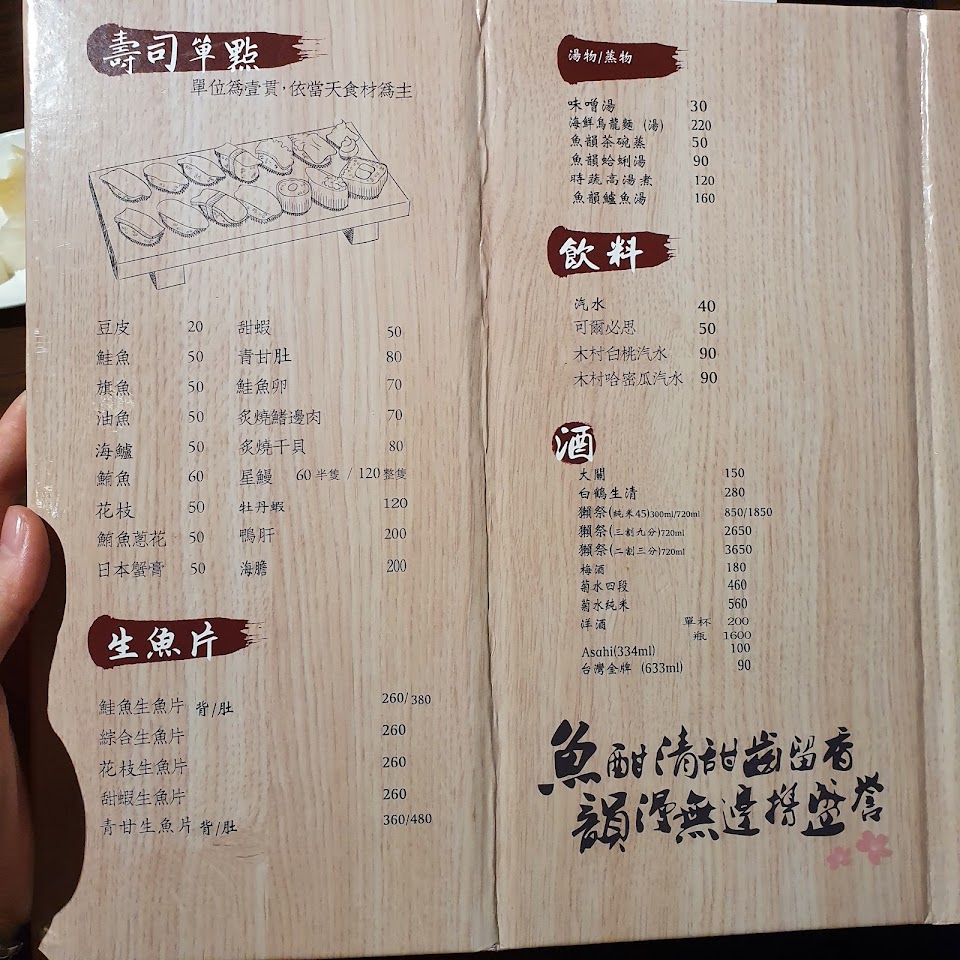 壽司單點
單位為壹貫，依當天食材為主
豆皮 20
鮭魚 50
旗魚 50
油魚 50
海鱸 50
鮪魚 60
花枝 50
鮪魚蔥花 50
日本蟹膏 50
甜蝦 50
青甘肚 80
鮭魚卵 70
炙燒鰭邊肉 70
炙燒干貝 80
星鰻 60 半隻 / 120 整隻
牡丹蝦 120
鴨肝 200
海膽 200
生魚片
鮭魚生魚片 背/肚 260/380
綜合生魚片 260
花枝生魚片 260
甜蝦生魚片 260
青甘生魚片 背/肚 360/480
湯物/蒸物
味噌湯 30
海鮮烏龍麵 (湯) 220
魚韻茶碗蒸 50
魚韻蛤蜊湯 90
時蔬高湯煮 120
魚韻鱸魚湯 160
飲料
汽水 40
可爾必思 50
木村白桃汽水 90
木村哈密瓜汽水 90
酒
大關 150
白鶴生清 280
獺祭(純米45)300ml/720ml 850/1850
獺祭(三割九分)720ml 2650
獺祭(二割三分)720ml 3650
梅酒 180
菊水四段 460
菊水純米 560
洋酒 單杯 200
瓶 1600
Asahi(334ml) 100
台灣金牌 (633ml) 90
魚酣清甜齒留香
韻漫無邊撐盛譽